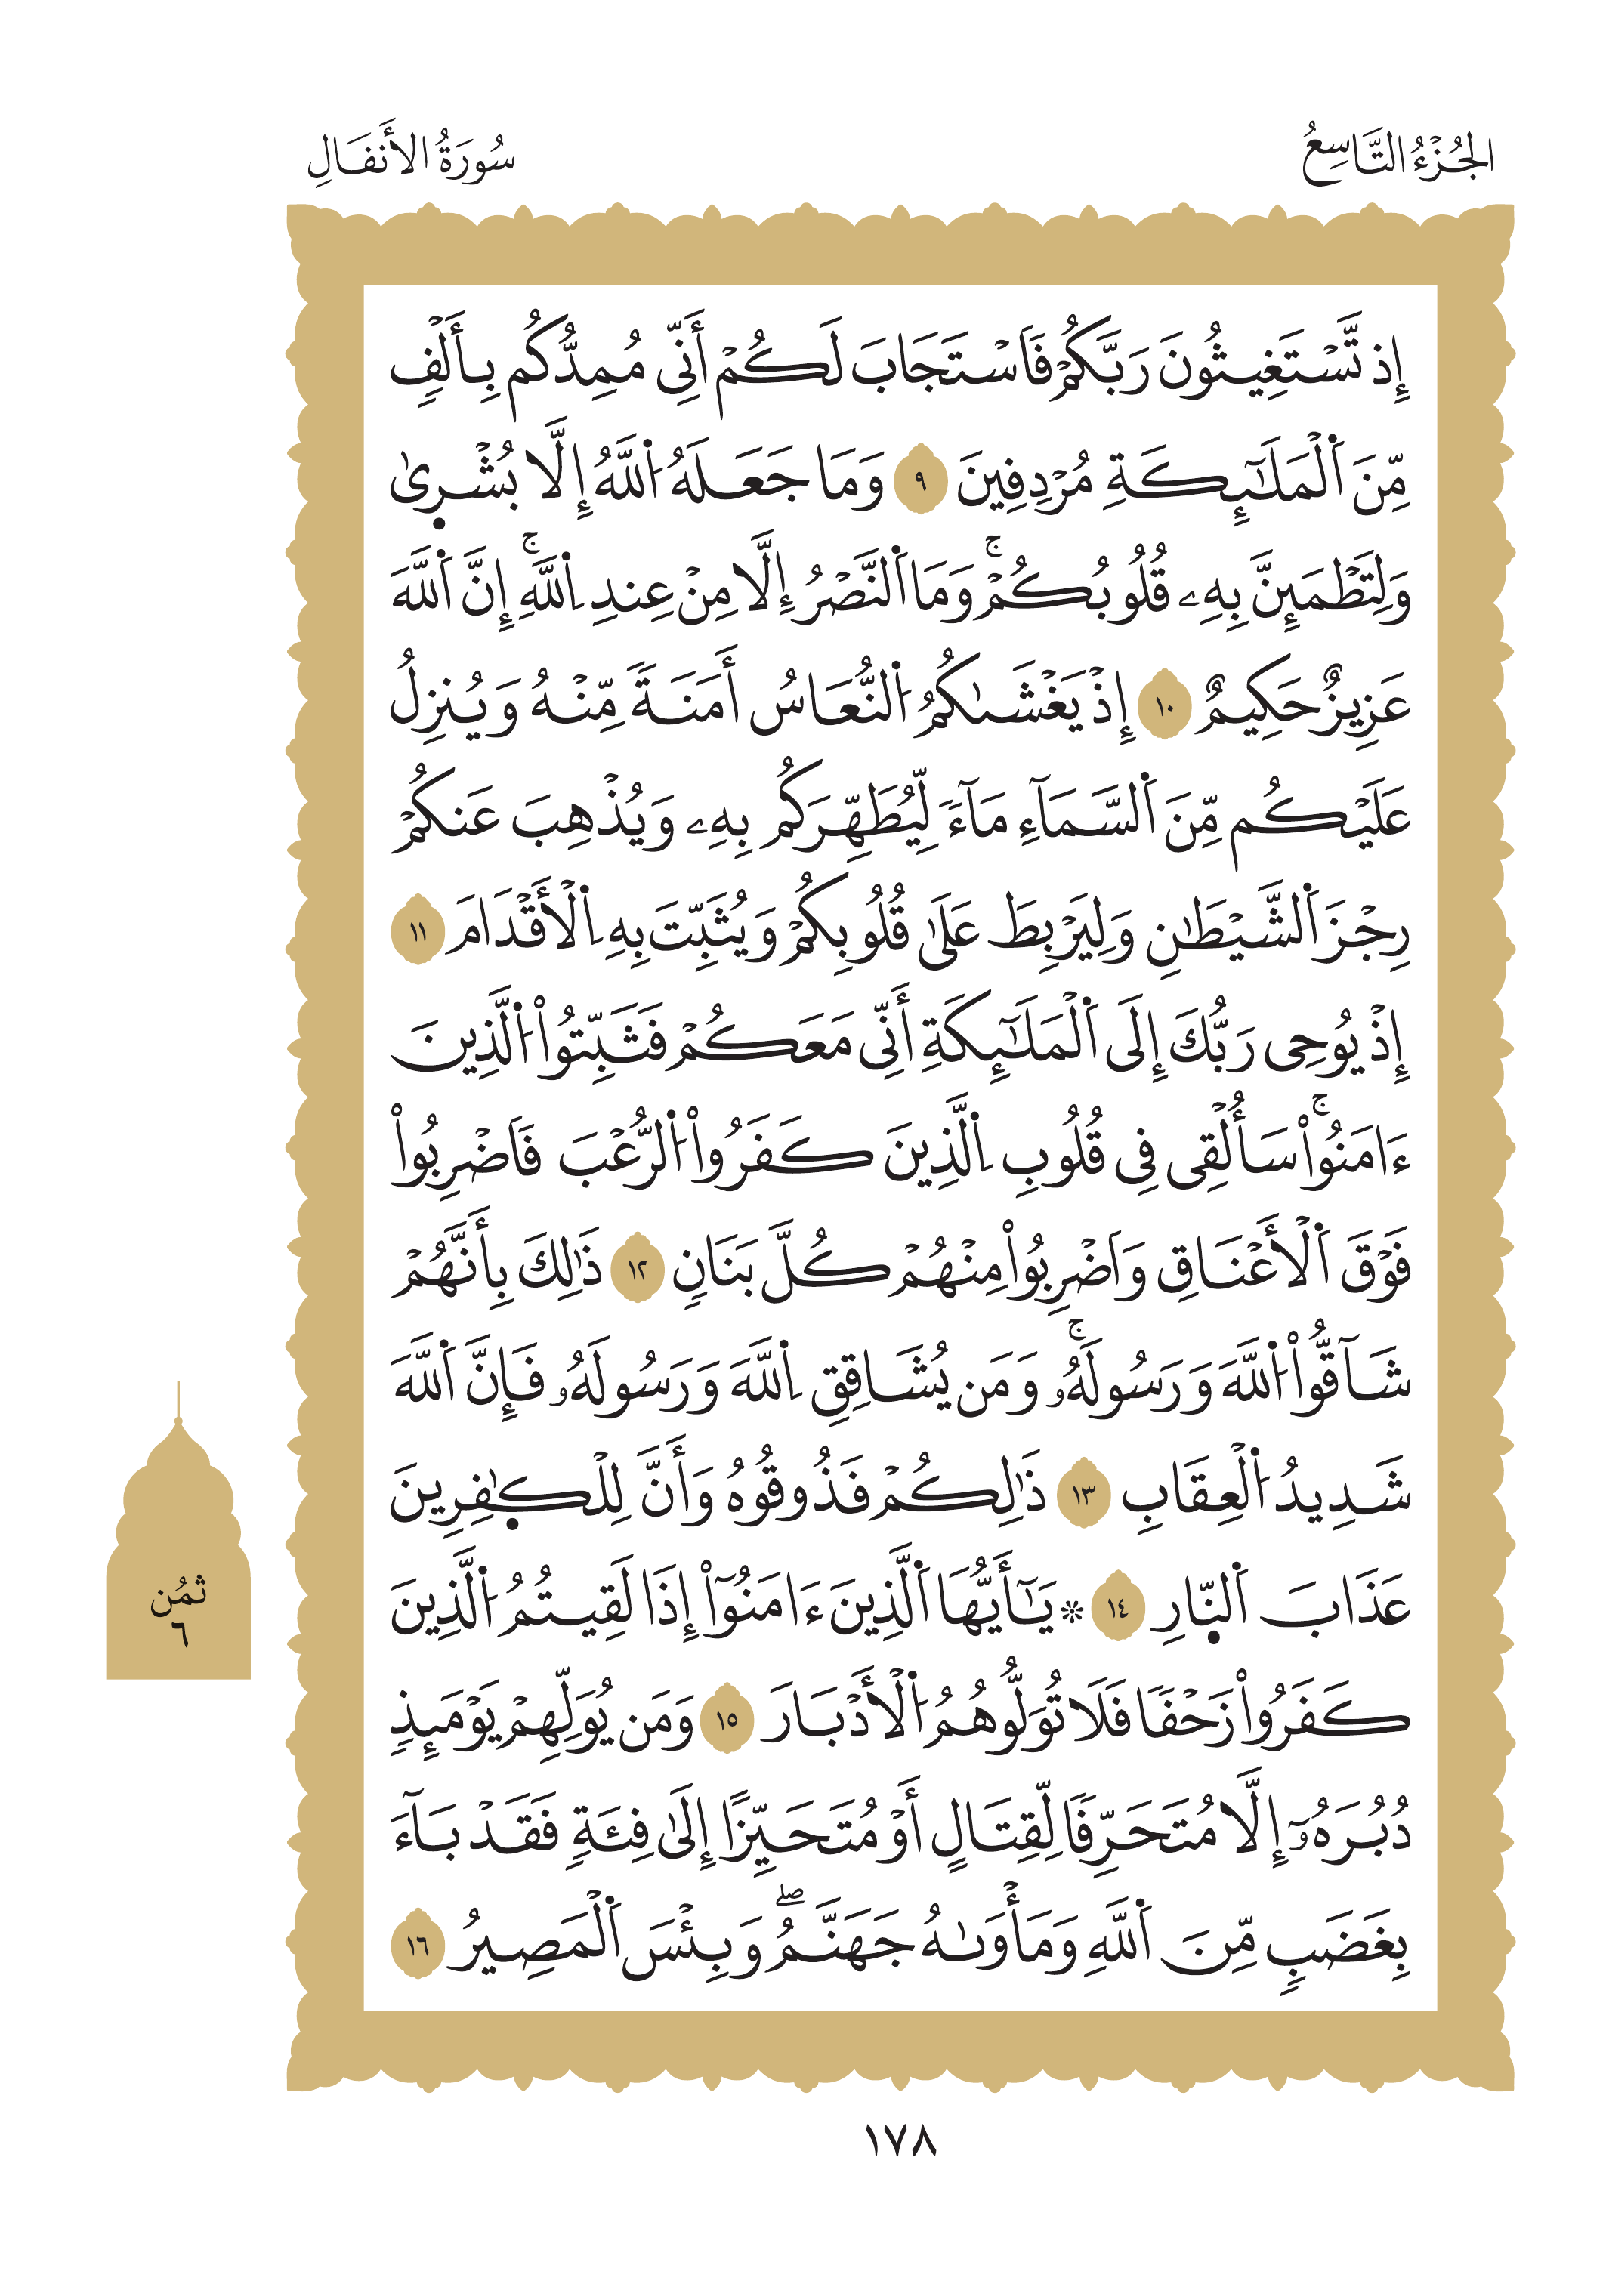 الجُزْءُ التَّاسِعُ
سُورَةُ الأَنفَالِ
إِذ تَّسْتَغِيثُونَ رَبَّكُمْ فَاَسْتَجَابَ لَكُمْ أَنِّي مُمِدُّكُم بِأَلْفٖ
مِّنَ اَ۬لْمَلَٰٓئِكَةِ مُرْدِفِينَ ٩ وَمَا جَعَلَهُ اُ۬للَّهُ إِلَّا بُشْر۪ىٰ
وَلِتَطْمَئِنَّ بِهِۦ قُلُوبُكُمْۚ وَمَا اَ۬لنَّصْرُ إِلَّا مِنْ عِندِ اِ۬للَّهِۚ إِنَّ اَ۬للَّهَ
عَزِيزٌ حَكِيمٌ ١٠ إِذْ يَغْشَىٰكُمُ اُ۬لنُّعَاسُ أَمَنَةٗ مِّنْهُ وَيُنزِلُ
عَلَيْكُم مِّنَ اَ۬لسَّمَآءِ مَآءٗ لِّيُطَهِّرَكُم بِهِۦ وَيُذْهِبَ عَنكُمْ
رِجْزَ اَ۬لشَّيْطَٰنِ وَلِيَرْبِطَ عَلَىٰ قُلُوبِكُمْ وَيُثَبِّتَ بِهِ اِ۬لْأَقْدَامَ ١١
إِذْ يُوحِى رَبُّكَ إِلَى اَ۬لْمَلَٰٓئِكَةِ أَنِّى مَعَكُمْ فَثَبِّتُواْ اُ۬لَّذِينَ
ءَامَنُواْۚ سَأُلْقِى فِى قُلُوبِ اِ۬لَّذِينَ كَفَرُواْ اُ۬لرُّعْبَ فَاَضْرِبُواْ
فَوْقَ اَ۬لْأَعْنَاقِ وَاَضْرِبُواْ مِنْهُمْ كُلَّ بَنَانٖ ١٢ ذَٰلِكَ بِأَنَّهُمْ
شَآقُّواْ اُ۬للَّهَ وَرَسُولَهُۥۚ وَمَن يُشَاقِقِ اِ۬للَّهَ وَرَسُولَهُۥ فَإِنَّ اَ۬للَّهَ
شَدِيدُ اُ۬لْعِقَابِ ١٣ ذَٰلِكُمْ فَذُوقُوهُ وَأَنَّ لِلْكٰ۪فِرِينَ
عَذَابَ اَ۬لنّ۪ارِ ١٤ ۞ يَٰٓأَيُّهَا اَ۬لَّذِينَ ءَامَنُوٓاْ إِذَا لَقِيتُمُ اُ۬لَّذِينَ
كَفَرُواْ زَحْفٗا فَلَا تُوَلُّوهُمُ اُ۬لْأَدْبَارَ ١٥ وَمَن يُوَلِّهِمْ يَوْمَئِذٖ
دُبُرَهُۥٓ إِلَّا مُتَحَرِّفٗا لِّقِتَالٍ أَوْ مُتَحَيِّزًا إِلَىٰ فِئَةٖ فَقَدْ بَآءَ
بِغَضَبٖ مِّنَ اَ۬للَّهِ وَمَأْوَىٰهُ جَهَنَّمُۖ وَبِئْسَ اَ۬لْمَصِيرُ ١٦
ثُمُن
٦
١٧٨